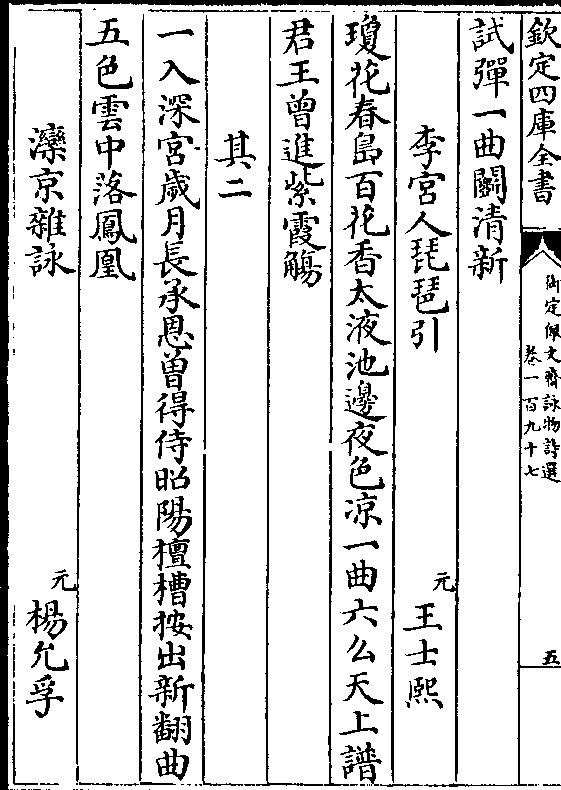 欽定四庫全書
御定佩文齋詠物詩選
卷一百九十七
五
試彈一曲鬭清新
李宮人琵琶引
元
王士熙
瓊花春島百花香太液池邊夜色凉一曲六么天上譜
君王曾進紫霞觴
其二
一入深宮歲月長承恩曾得侍昭陽檀槽按出新翻曲
五色雲中落鳳凰
灤京雜詠
元
楊允孚